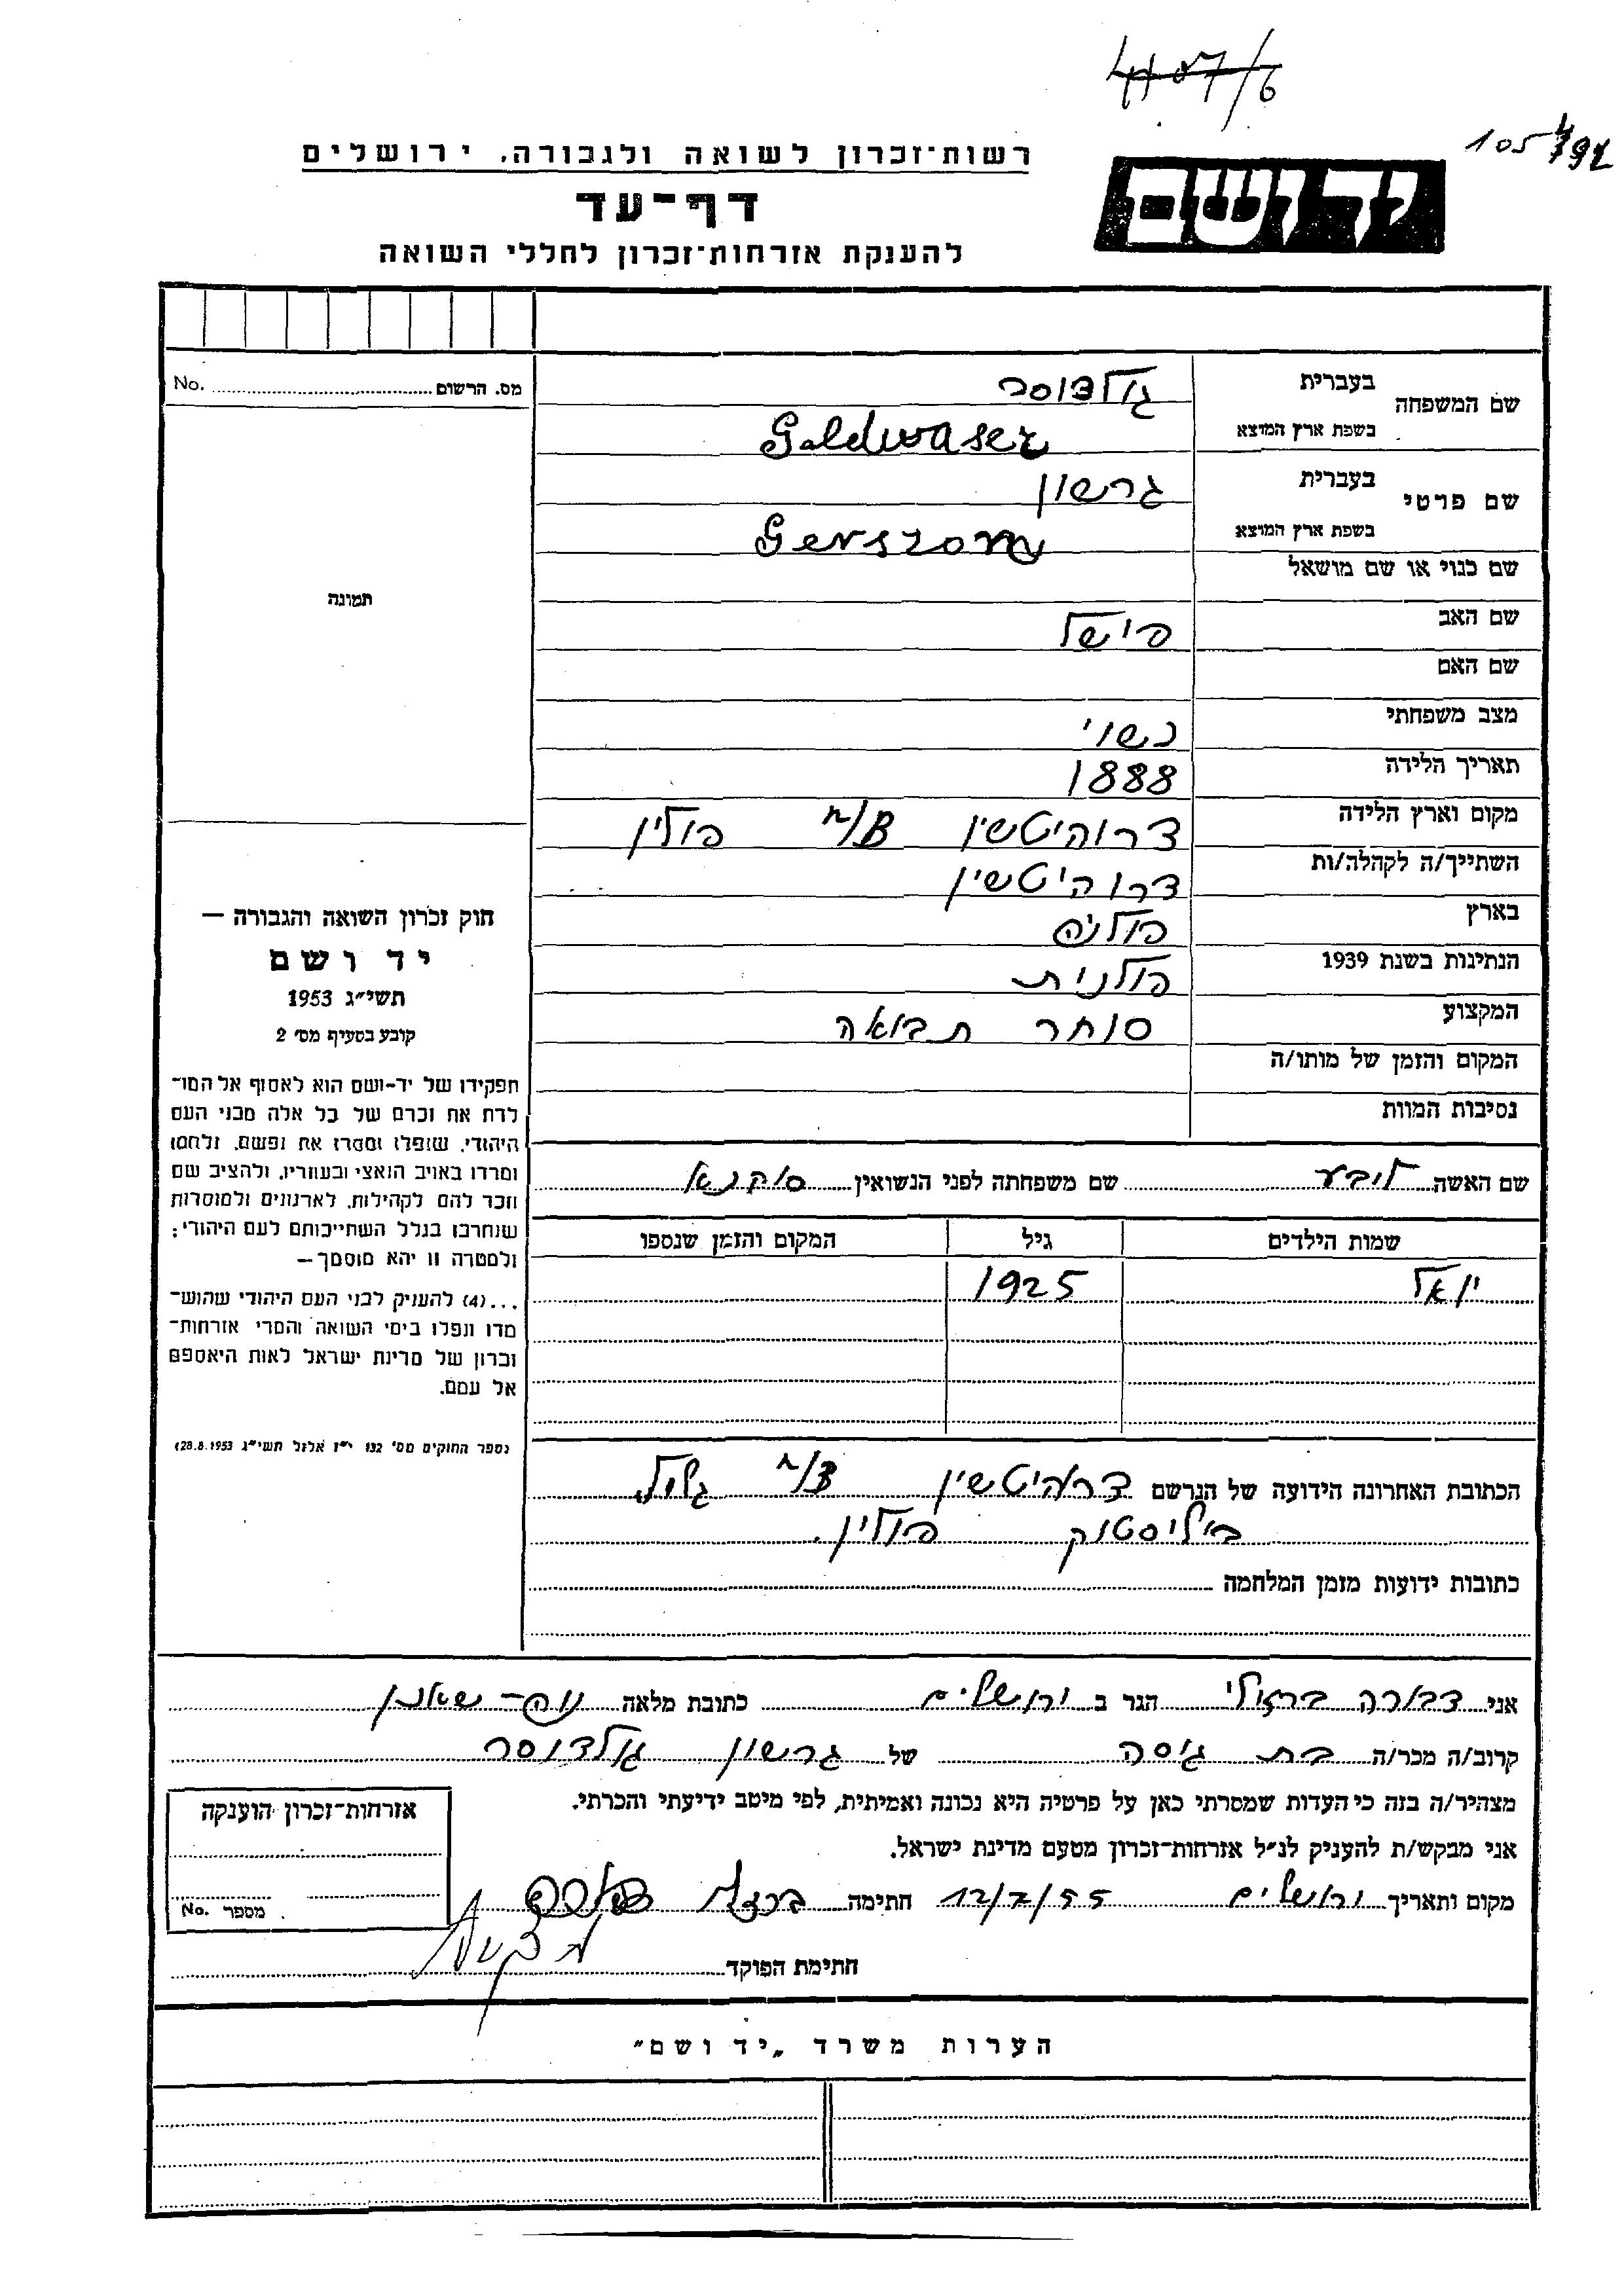 4107/6
105
יד ושם
רשות־זכרון לשואה ולגבורה, ירושלים
דף־עד
להענקת אזרחות־זכרון לחללי השואה
מס. הרשום No.
שם המשפחה
בעברית גולדוסר
בשפת ארץ המוצא Goldwaser
שם פרטי
בעברית גרשון
בשפת ארץ המוצא Gerszom
שם כנוי או שם מושאל
תמונה
שם האב פישל
שם האם
מצב משפחתי נשוי
תאריך הלידה 1888
מקום וארץ הלידה דרוהיטשין B/n פולין
השתייך/ה לקהלה/ות דרוהיטשין
בארץ פולניה
הנתינות בשנת 1939 פולנית
המקצוע סוחר תבואה
המקום והזמן של מותו/ה
נסיבות המוות
חוק זכרון השואה והגבורה —
יד ושם
תשי״ג 1953
קובע בסעיף מס׳ 2
תפקידו של יד-ושם הוא לאסוף אל המו־
לדת את זכרם של כל אלה מבני העם
היהודי, שנפלו ומסרו את נפשם, נלחמו
ומרדו באויב הנאצי ובעוזריו, ולהציב שם
וזכר להם לקהילות, לארגונים ולמוסדות
שנחרבו בגלל השתייכותם לעם היהודי;
ולמטרה זו יהא מוסמך —
...(4) להעניק לבני העם היהודי שהוש־
מדו ונפלו בימי השואה והמרי אזרחות־
זכרון של מדינת ישראל לאות היאספם
אל עמם.
(ספר החוקים מס׳ 132 י״ז אלול תשי״ג 28.8.1953)
שם האשה ליבע שם משפחתה לפני הנשואין סוקנא
שמות הילדים גיל המקום והזמן שנספו
יואל 1925
הכתובת האחרונה הידועה של הנרשם דרוהיטשין B/n גליל
ביליסטוק פולין.
כתובות ידועות מזמן המלחמה
אני דבורה ברזלי הגר ב ירושלים כתובת מלאה נוה-שאנן
קרוב/ה מכר/ה בת גיסה של גרשון גולדוסר
מצהיר/ה בזה כי העדות שמסרתי כאן על פרטיה היא נכונה ואמיתית, לפי מיטב ידיעתי והכרתי.
אני מבקש/ת להעניק לנ״ל אזרחות־זכרון מטעם מדינת ישראל.
מקום ותאריך ירושלים 12/7/55 חתימה
חתימת הפוקד
אזרחות־זכרון הוענקה
מספר No.
הערות משרד „יד ושם״